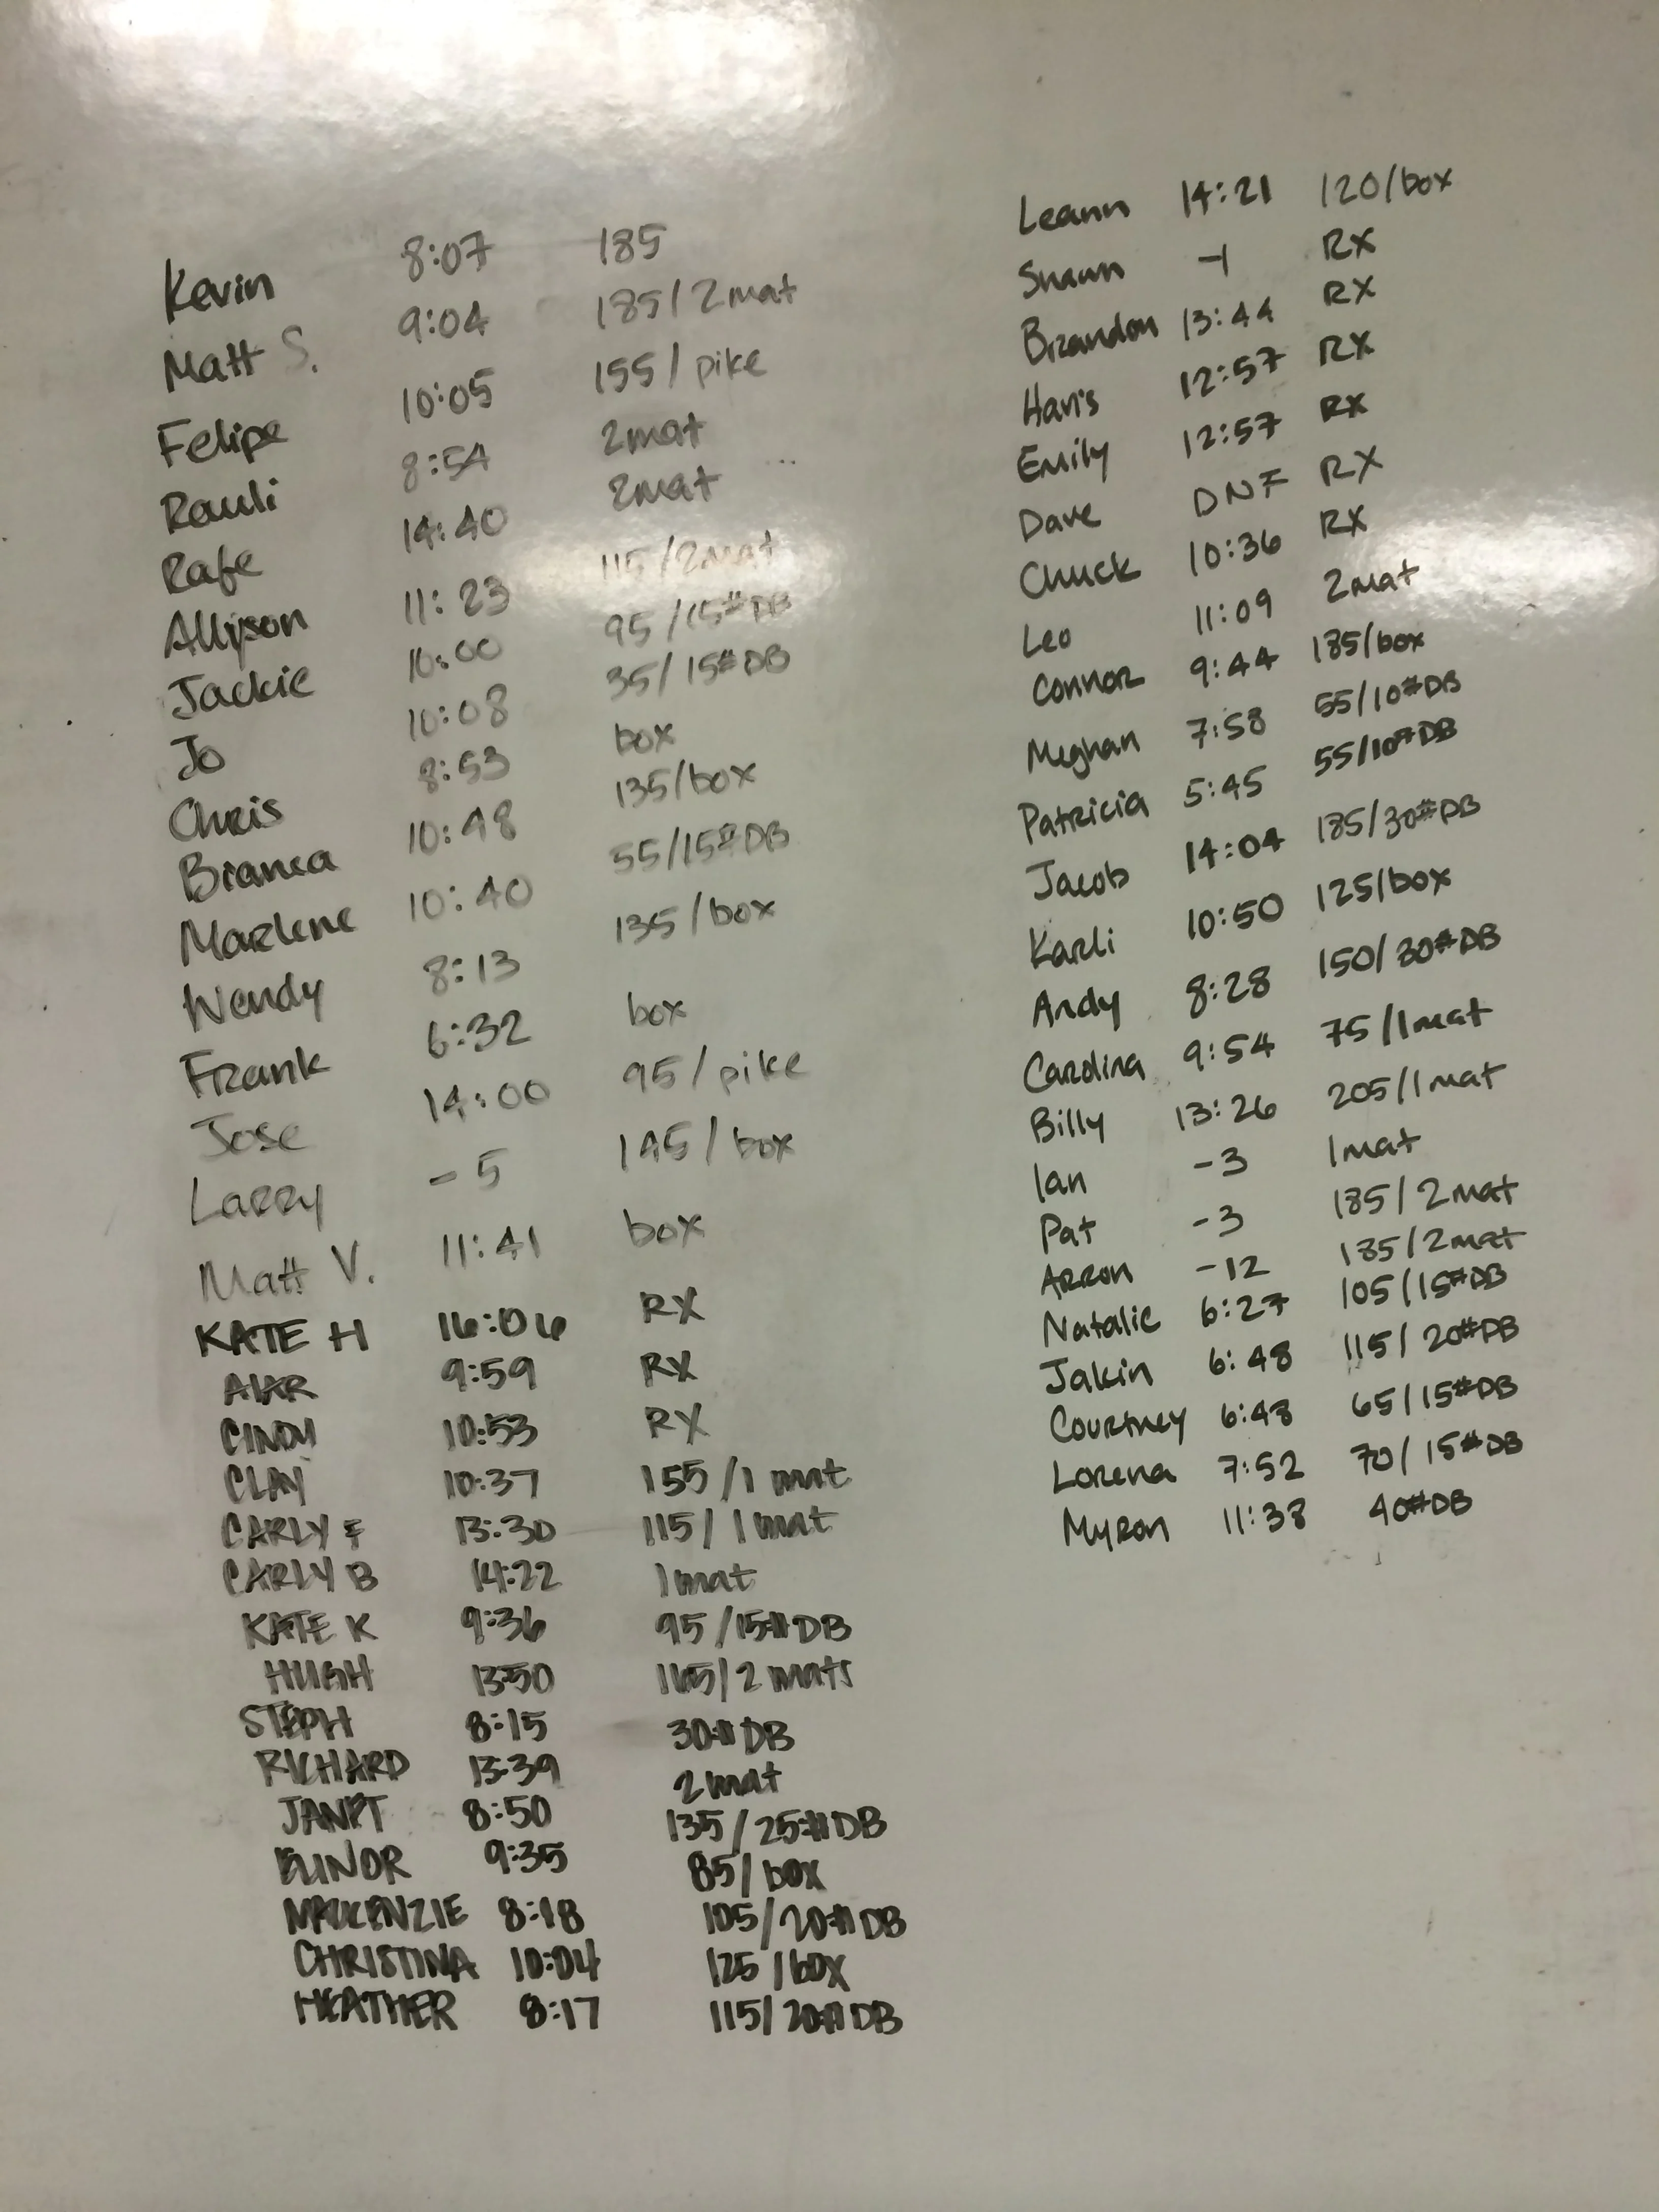 Kevin 8:07 185
Matt S. 9:04 185/2mat
Felipe 10:05 155/pike
Rauli 8:54 2mat
Rafe 14:40 2mat
Allyson 11:23 115/2mat
Jackie 10:00 95/15#DB
Jo 10:08 35/15#DB
Chris 8:53 box
Bianca 10:48 135/box
Marlene 10:40 55/15#DB
Wendy 8:13 135/box
Frank 6:32 box
Jose 14:00 95/pike
Larry -5 145/box
Matt V. 11:41 box
KATE H 16:06 RX
9:59 RX
CINDY 10:53 RX
CLAY 10:37 155/1 mat
CARLY F 13:30 115/1mat
CARLY B 14:22 1mat
KATE K 9:36 95/15#DB
HUGH 13:50 165/2 mats
STEPH 8:15 30#DB
RICHARD 13:39 2mat
JANET 8:50 135/25#DB
ELINOR 9:35 85/box
MACKENZIE 8:18 105/20#DB
CHRISTINA 10:04 125/box
HEATHER 8:17 115/20#DB
Leann 14:21 120/box
Shawn -1 RX
Brandon 13:44 RX
Harris 12:57 RX
Emily 12:57 RX
Dave DNF RX
Chuck 10:36 RX
Leo 11:09 2mat
Connor 9:44 185/box
Meghan 7:58 55/10#DB
Patricia 5:45 55/10#DB
Jacob 14:04 185/30#DB
Karli 10:50 125/box
Andy 8:28 150/30#DB
Carolina 9:54 75/1mat
Billy 13:26 205/1mat
Ian -3 1mat
Pat -3 185/2mat
Arron -12 185/2mat
Natalie 6:27 105/15#DB
Jakin 6:48 115/20#DB
Courtney 6:48 65/15#DB
Lorena 7:52 70/15#DB
Myron 11:38 40#DB